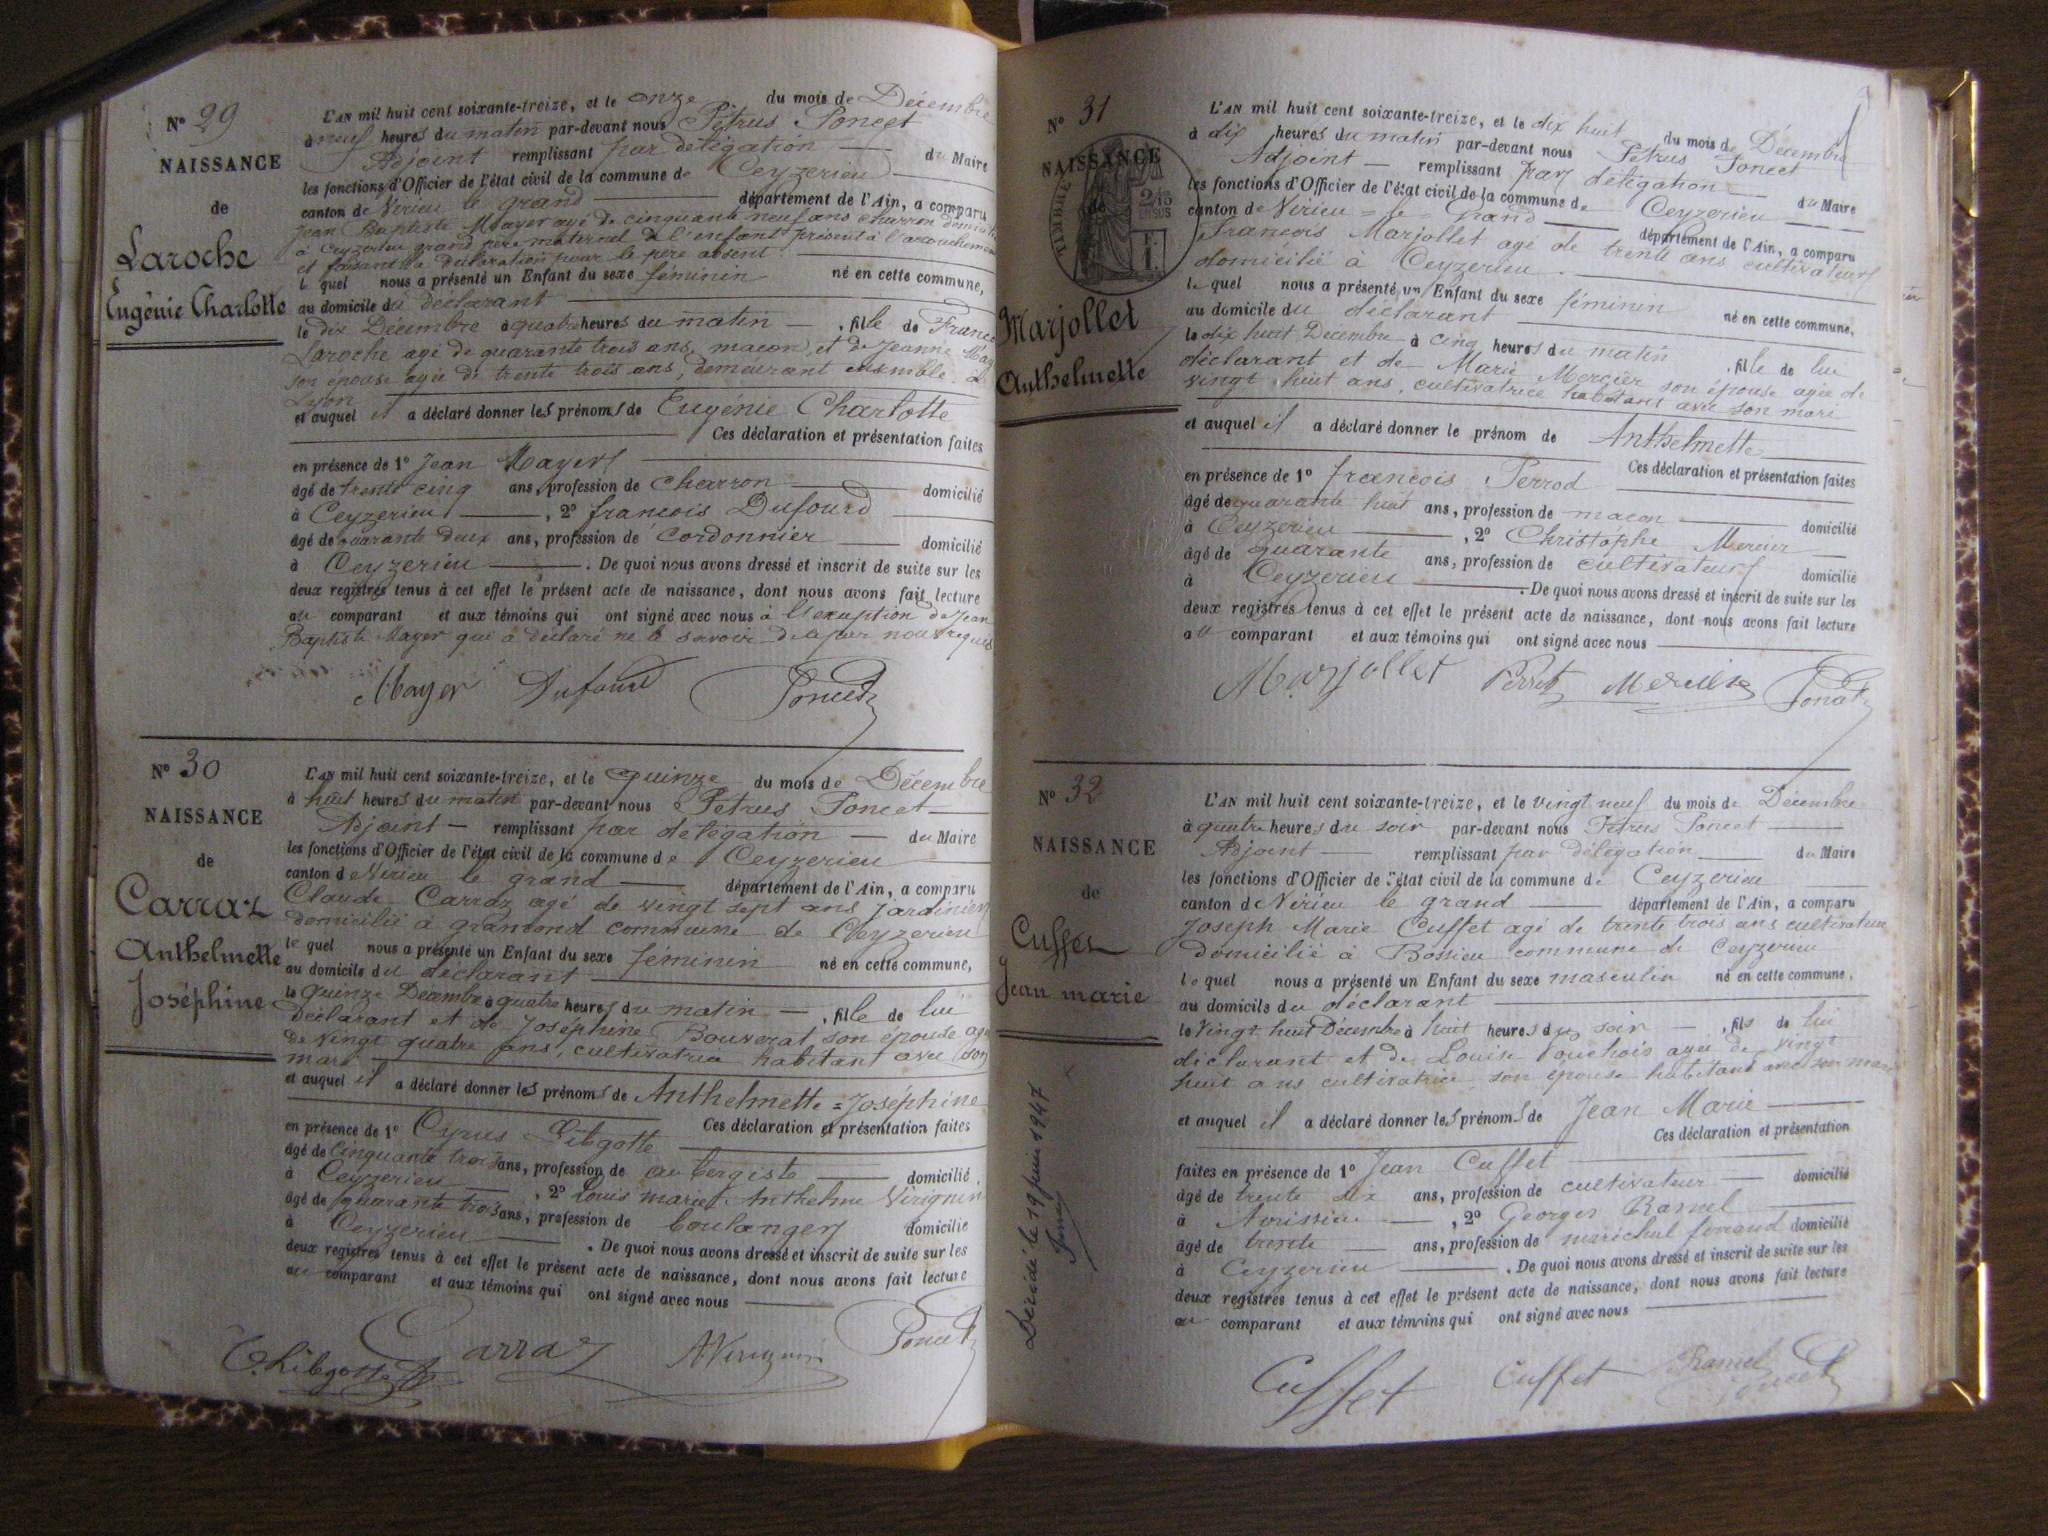 N° 29
NAISSANCE
de
Laroche
Eugénie Charlotte
L'AN mil huit cent soixante-treize, et le onze du mois de Décembre
à neuf heures du matin par-devant nous Pétrus Poncet
Adjoint remplissant par délégation du Maire
les fonctions d'Officier de l'état civil de la commune de Ceyzerieu
canton de Virieu le grand département de l'Ain, a comparu
Jean Baptiste Mayer agé de cinquante neuf ans charron domicilié
à Ceyzerieu grand père maternel de l'enfant présent à l'accouchement
et faisant la déclaration pour le père absent
lequel nous a présenté un Enfant du sexe féminin né en cette commune,
au domicile du déclarant
le dix Décembre à quatre heures du matin , fille de Franc
Laroche agé de quarante trois ans, maçon, et de Jeanne May
son épouse agée de trente trois ans, demeurant ensemble à
Lyon
et auquel il a déclaré donner les prénoms de Eugénie Charlotte
Ces déclaration et présentation faites
en présence de 1° Jean Mayer
âgé de trente cinq ans, profession de charron domicilié
à Ceyzerieu , 2° francois Dufourd
âgé de quarante deux ans, profession de cordonnier domicilié
à Ceyzerieu . De quoi nous avons dressé et inscrit de suite sur les
deux registres tenus à cet effet le présent acte de naissance, dont nous avons fait lecture
au comparant et aux témoins qui ont signé avec nous à l'exception de Jean
Baptiste Mayer qui a déclaré ne le savoir de ce par nous requis
Mayer Dufourd Poncet
N° 30
NAISSANCE
de
Carraz
Anthelmette
Joséphine
L'AN mil huit cent soixante-treize, et le quinze du mois de Décembre
à huit heures du matin par-devant nous Pétrus Poncet
Adjoint remplissant par délégation du Maire
les fonctions d'Officier de l'état civil de la commune de Ceyzerieu
canton de Virieu le grand département de l'Ain, a comparu
Claude Carraz agé de vingt sept ans jardinier
domicilié à gramond commune de Ceyzerieu
lequel nous a présenté un Enfant du sexe féminin né en cette commune,
au domicile du déclarant
le quinze Décembre à quatre heures du matin , fille de lui
déclarant et de Joséphine Bouverat, son épouse agée
de vingt quatre ans, cultivatrice habitant avec son
mari
et auquel il a déclaré donner les prénoms de Anthelmette = Joséphine
Ces déclaration et présentation faites
en présence de 1° Cyrus Libgotte
âgé de cinquante trois ans, profession de aubergiste domicilié
à Ceyzerieu , 2° Louis marie Anthelme Virignin
âgé de quarante trois ans, profession de boulanger domicilié
à Ceyzerieu . De quoi nous avons dressé et inscrit de suite sur les
deux registres tenus à cet effet le présent acte de naissance, dont nous avons fait lecture
au comparant et aux témoins qui ont signé avec nous
C. Libgotte Carraz Virignin Poncet
N° 31
NAISSANCE
de
TIMBRE
2/10
EN SUS
Marjollet
Anthelmette
L'AN mil huit cent soixante-treize, et le dix huit du mois de Décembre
à dix heures du matin par-devant nous Pétrus Poncet
Adjoint remplissant par délégation du Maire
les fonctions d'Officier de l'état civil de la commune de Ceyzerieu
canton de Virieu = le = Grand département de l'Ain, a comparu
Francois Marjollet agé de trente ans cultivateur
domicilié à Ceyzerieu.
lequel nous a présenté un Enfant du sexe féminin né en cette commune,
au domicile du déclarant
le dix huit Décembre à cinq heures du matin , fille de lui
déclarant et de Marie Mercier son épouse agée de
vingt huit ans, cultivatrice habitant avec son mari
et auquel il a déclaré donner le prénom de Anthelmette
Ces déclaration et présentation faites
en présence de 1° francois Perrod
âgé de quarante huit ans, profession de maçon domicilié
à Ceyzerieu , 2° Christophe Mercier
âgé de quarante ans, profession de cultivateur domicilié
à Ceyzerieu . De quoi nous avons dressé et inscrit de suite sur les
deux registres tenus à cet effet le présent acte de naissance, dont nous avons fait lecture
au comparant et aux témoins qui ont signé avec nous
Marjollet Mercier Poncet
N° 32
NAISSANCE
de
Cuffet
Jean marie
Décédé le 19 juin 1947
L'AN mil huit cent soixante-treize, et le vingt neuf du mois de Décembre
à quatre heures du soir par-devant nous Pétrus Poncet
Adjoint remplissant par délégation du Maire
les fonctions d'Officier de l'état civil de la commune de Ceyzerieu
canton de Virieu le grand département de l'Ain, a comparu
Joseph Marie Cuffet agé de trente trois ans cultivateur
domicilié à Bossieu commune de Ceyzerieu
lequel nous a présenté un Enfant du sexe masculin né en cette commune,
au domicile du déclarant
le vingt huit Décembre à huit heures du soir , fils de lui
déclarant et de Louise agée de vingt
huit ans cultivatrice, son épouse habitant avec son mari
et auquel il a déclaré donner les prénoms de Jean Marie
Ces déclaration et présentation
faites en présence de 1° Jean Cuffet
âgé de trente six ans, profession de cultivateur domicilié
à Avrissieu , 2° Georges Ramel
âgé de trente ans, profession de maréchal ferrand domicilié
à Ceyzerieu . De quoi nous avons dressé et inscrit de suite sur les
deux registres tenus à cet effet le présent acte de naissance, dont nous avons fait lecture
au comparant et aux témoins qui ont signé avec nous
Cuffet Cuffet Ramel Poncet